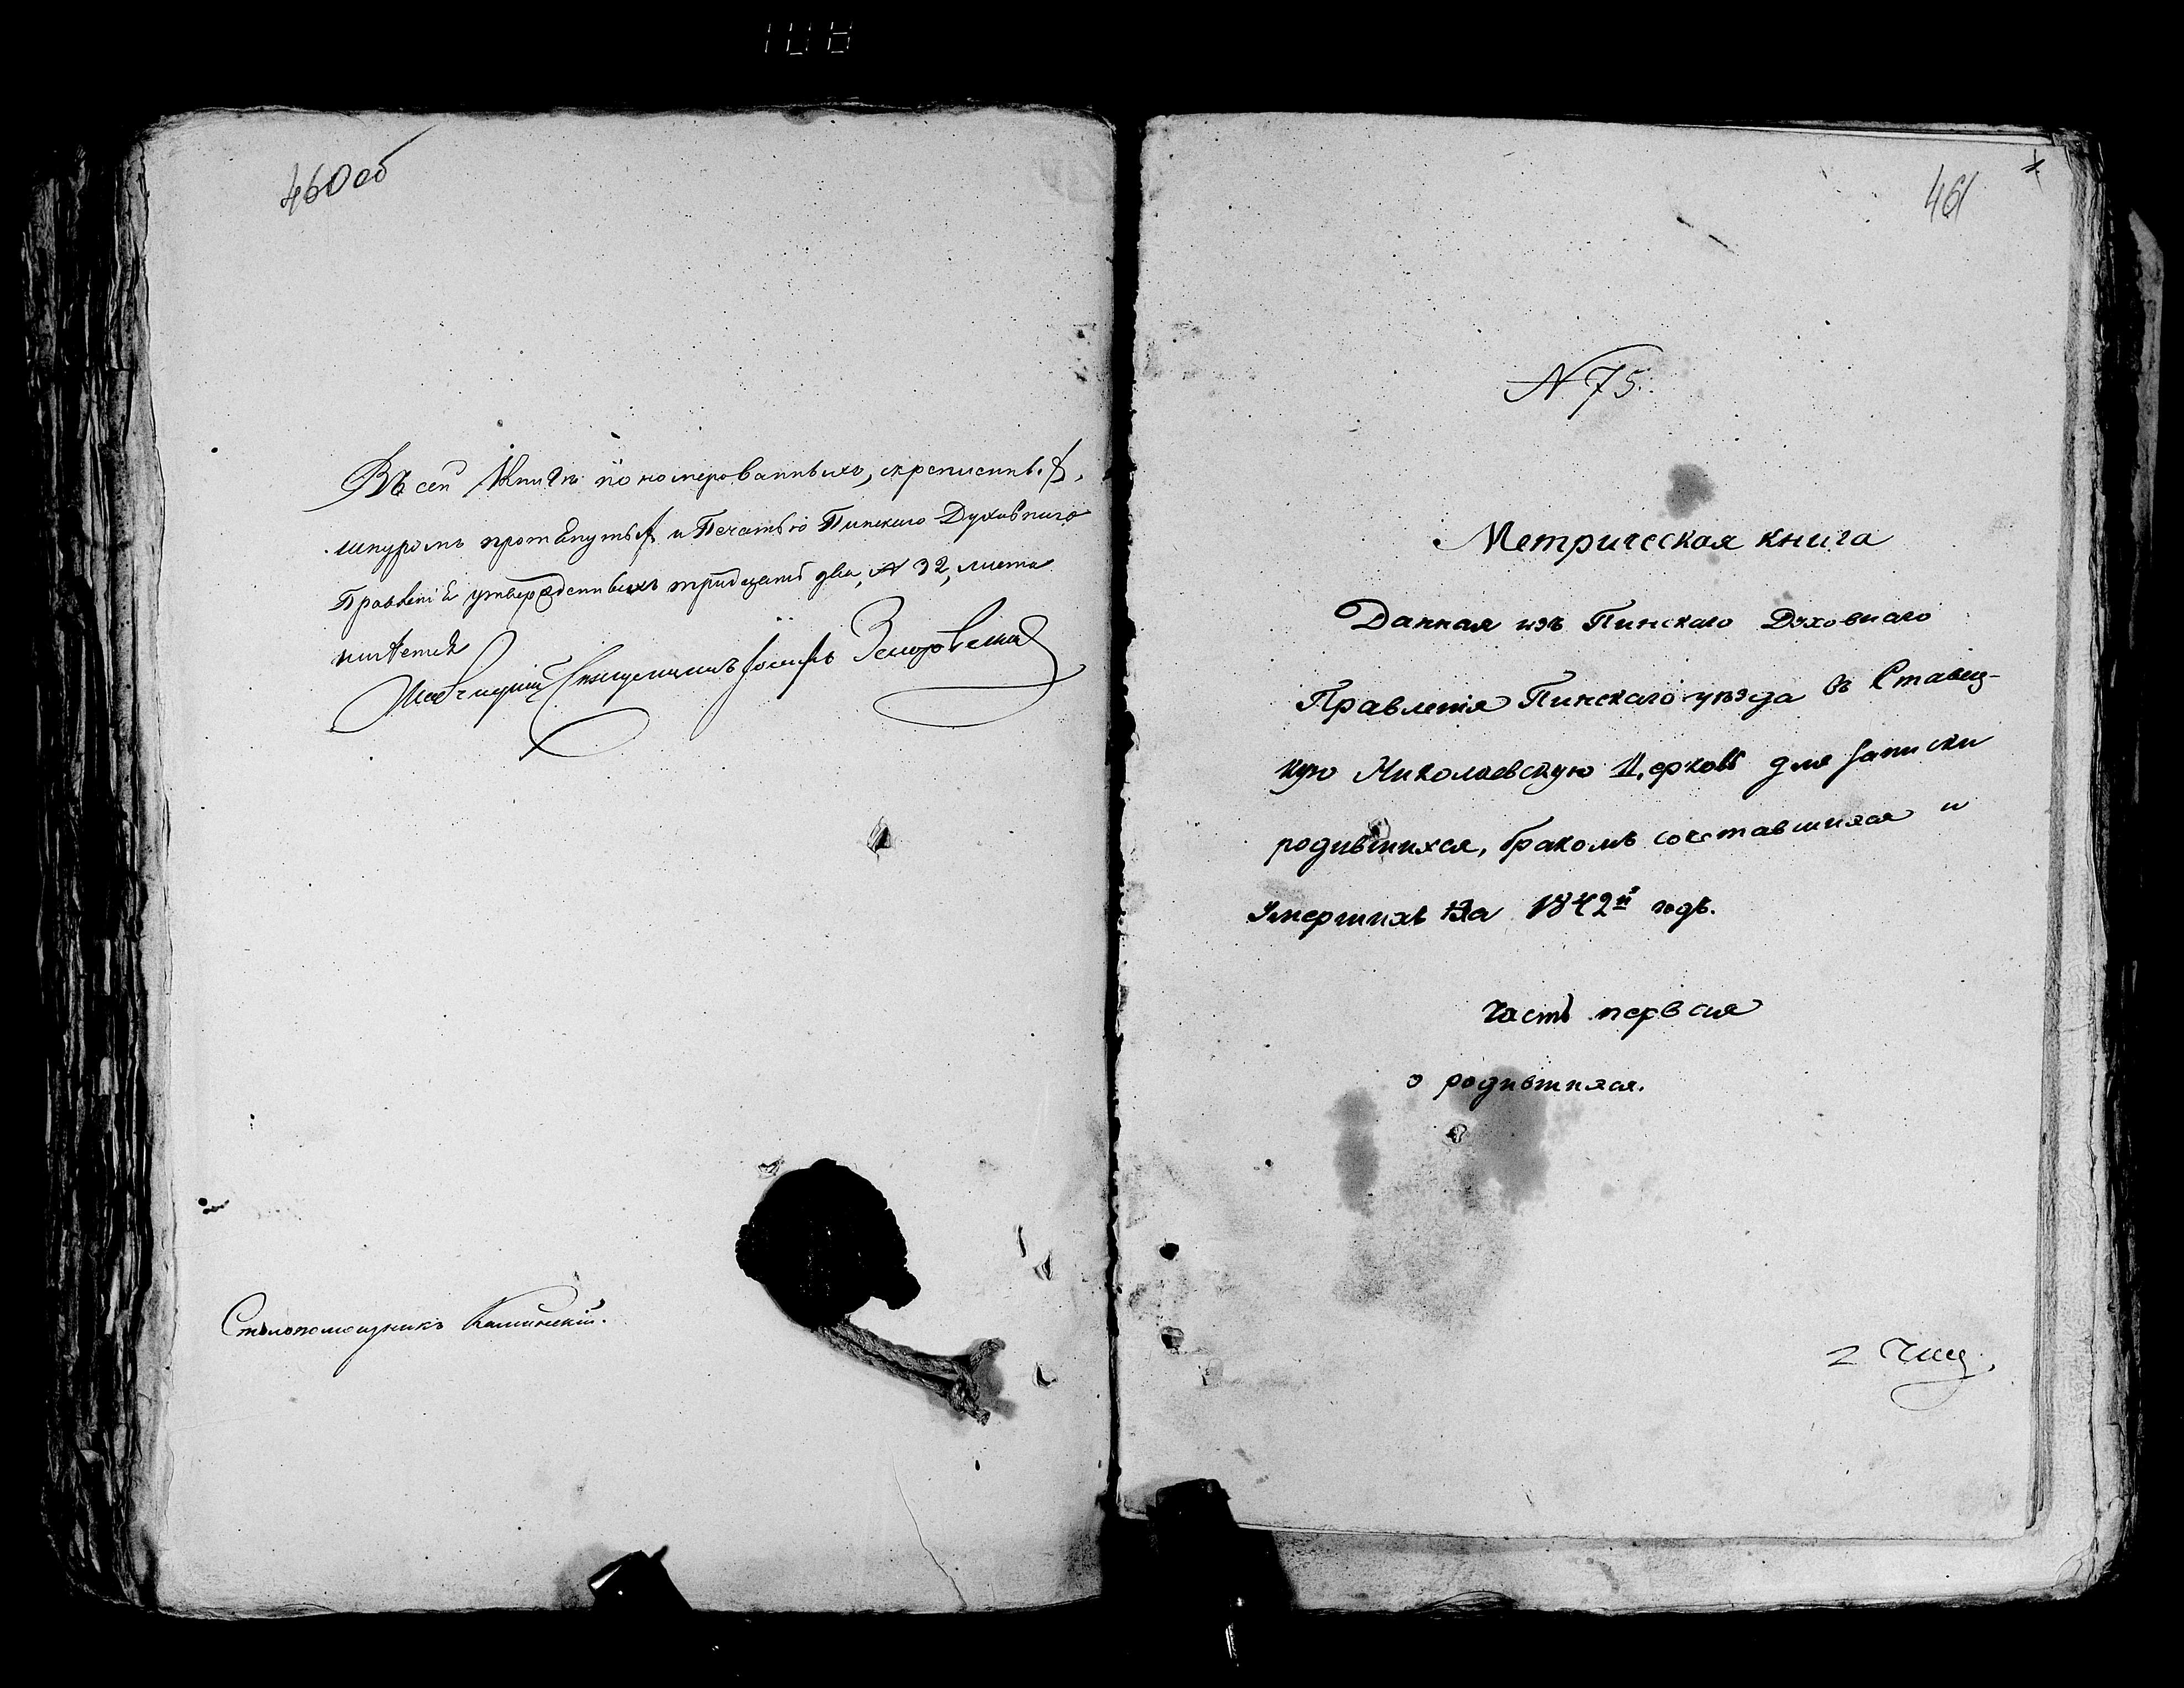 460 об
Въ сей Книгѣ пономерованныхъ, скрепленных,
шнуромъ протянутых и Печатью Пинского Духовнаго
Правленія утвержденныхъ тридцать два, № 32, листа
имѣется
Священникъ Іосифъ
Столопомощникъ Каминскій.
461
1
N 75.
Метрическая книга
Данная изъ Пинскаго Духовнаго
Правленія Пинскаго уѣзда въ Ставец-
кую Николаевскую Церковь для записки
родившихся, бракомъ сочетавшихся и
Умершихъ На 1842й годъ.
Часть первая
о родившихся.